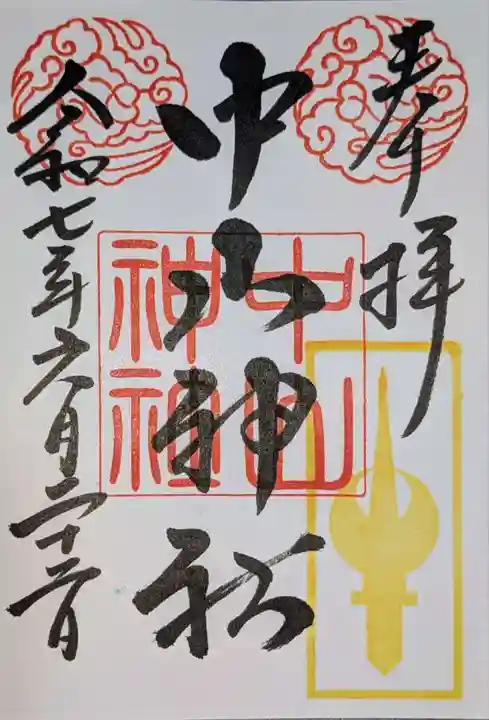 奉拝
中山神社
中山神社
令和七年六月二十二日